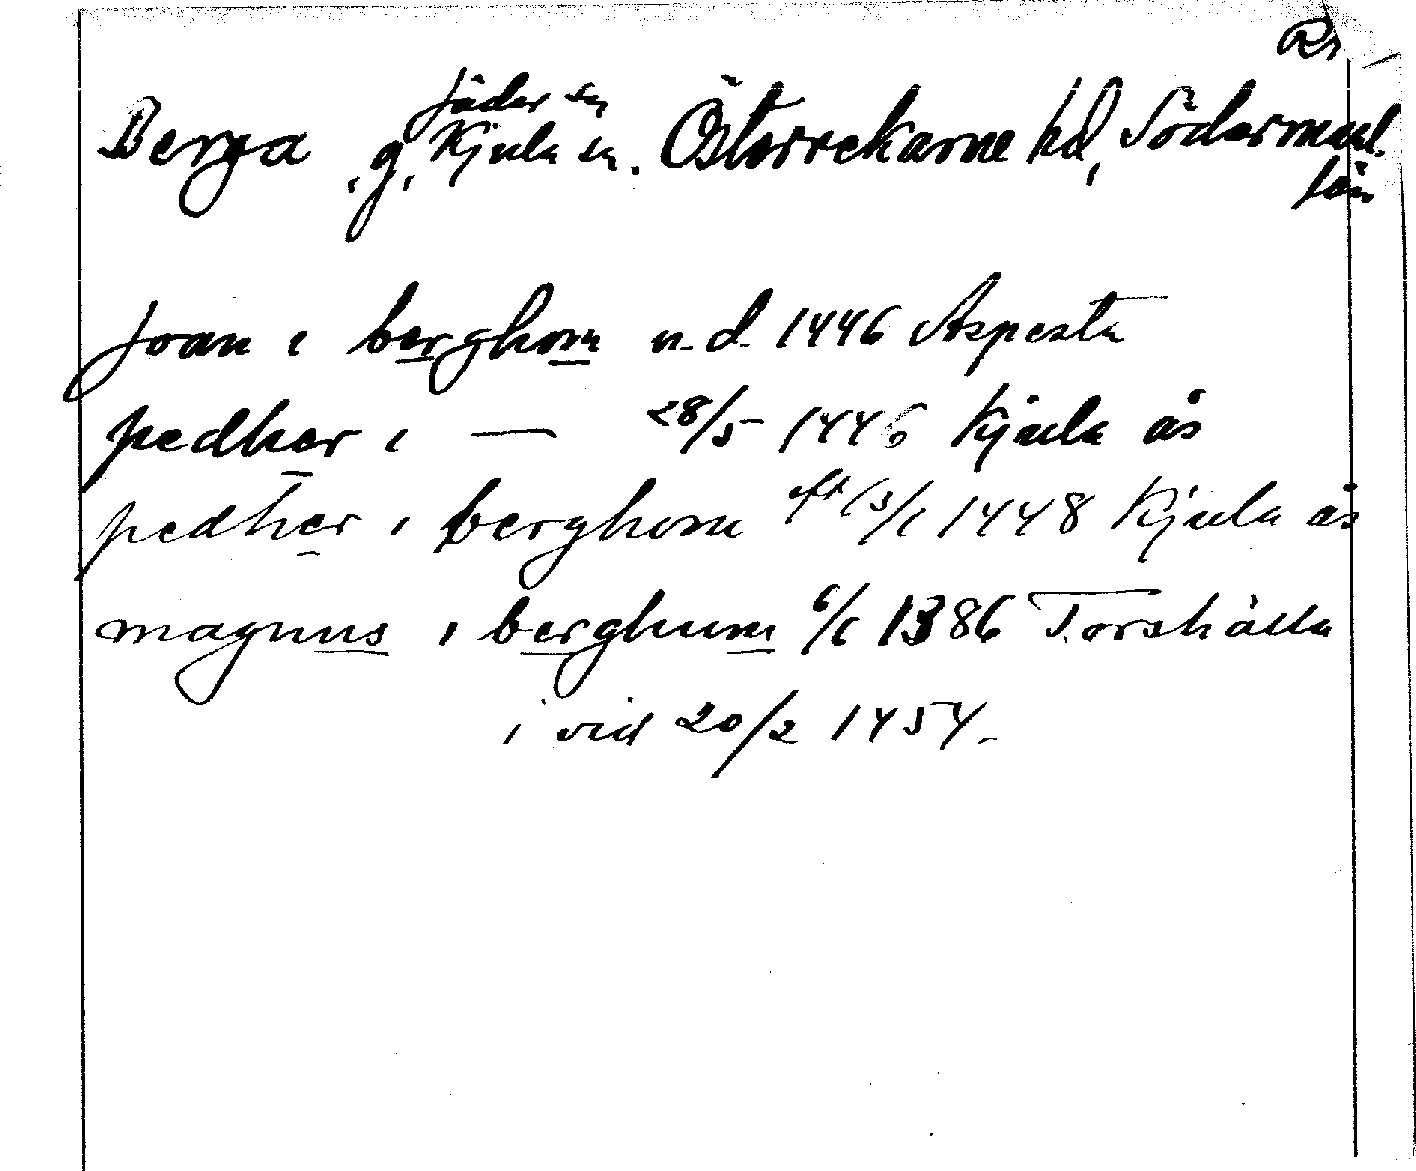 Ra
Jäder sn
Berga, g. Kjula sn. Österrekarne hd, Södermanl.
län
Joan i berghom u.d. 1446 Aspesta
pedher i — 28/5 1446 Kjula ås
pedher i berghom eft 13/1 1448 Kjula ås
magnus i berghum 6/1 1386 Torshälla
i vid 20/2 1454.